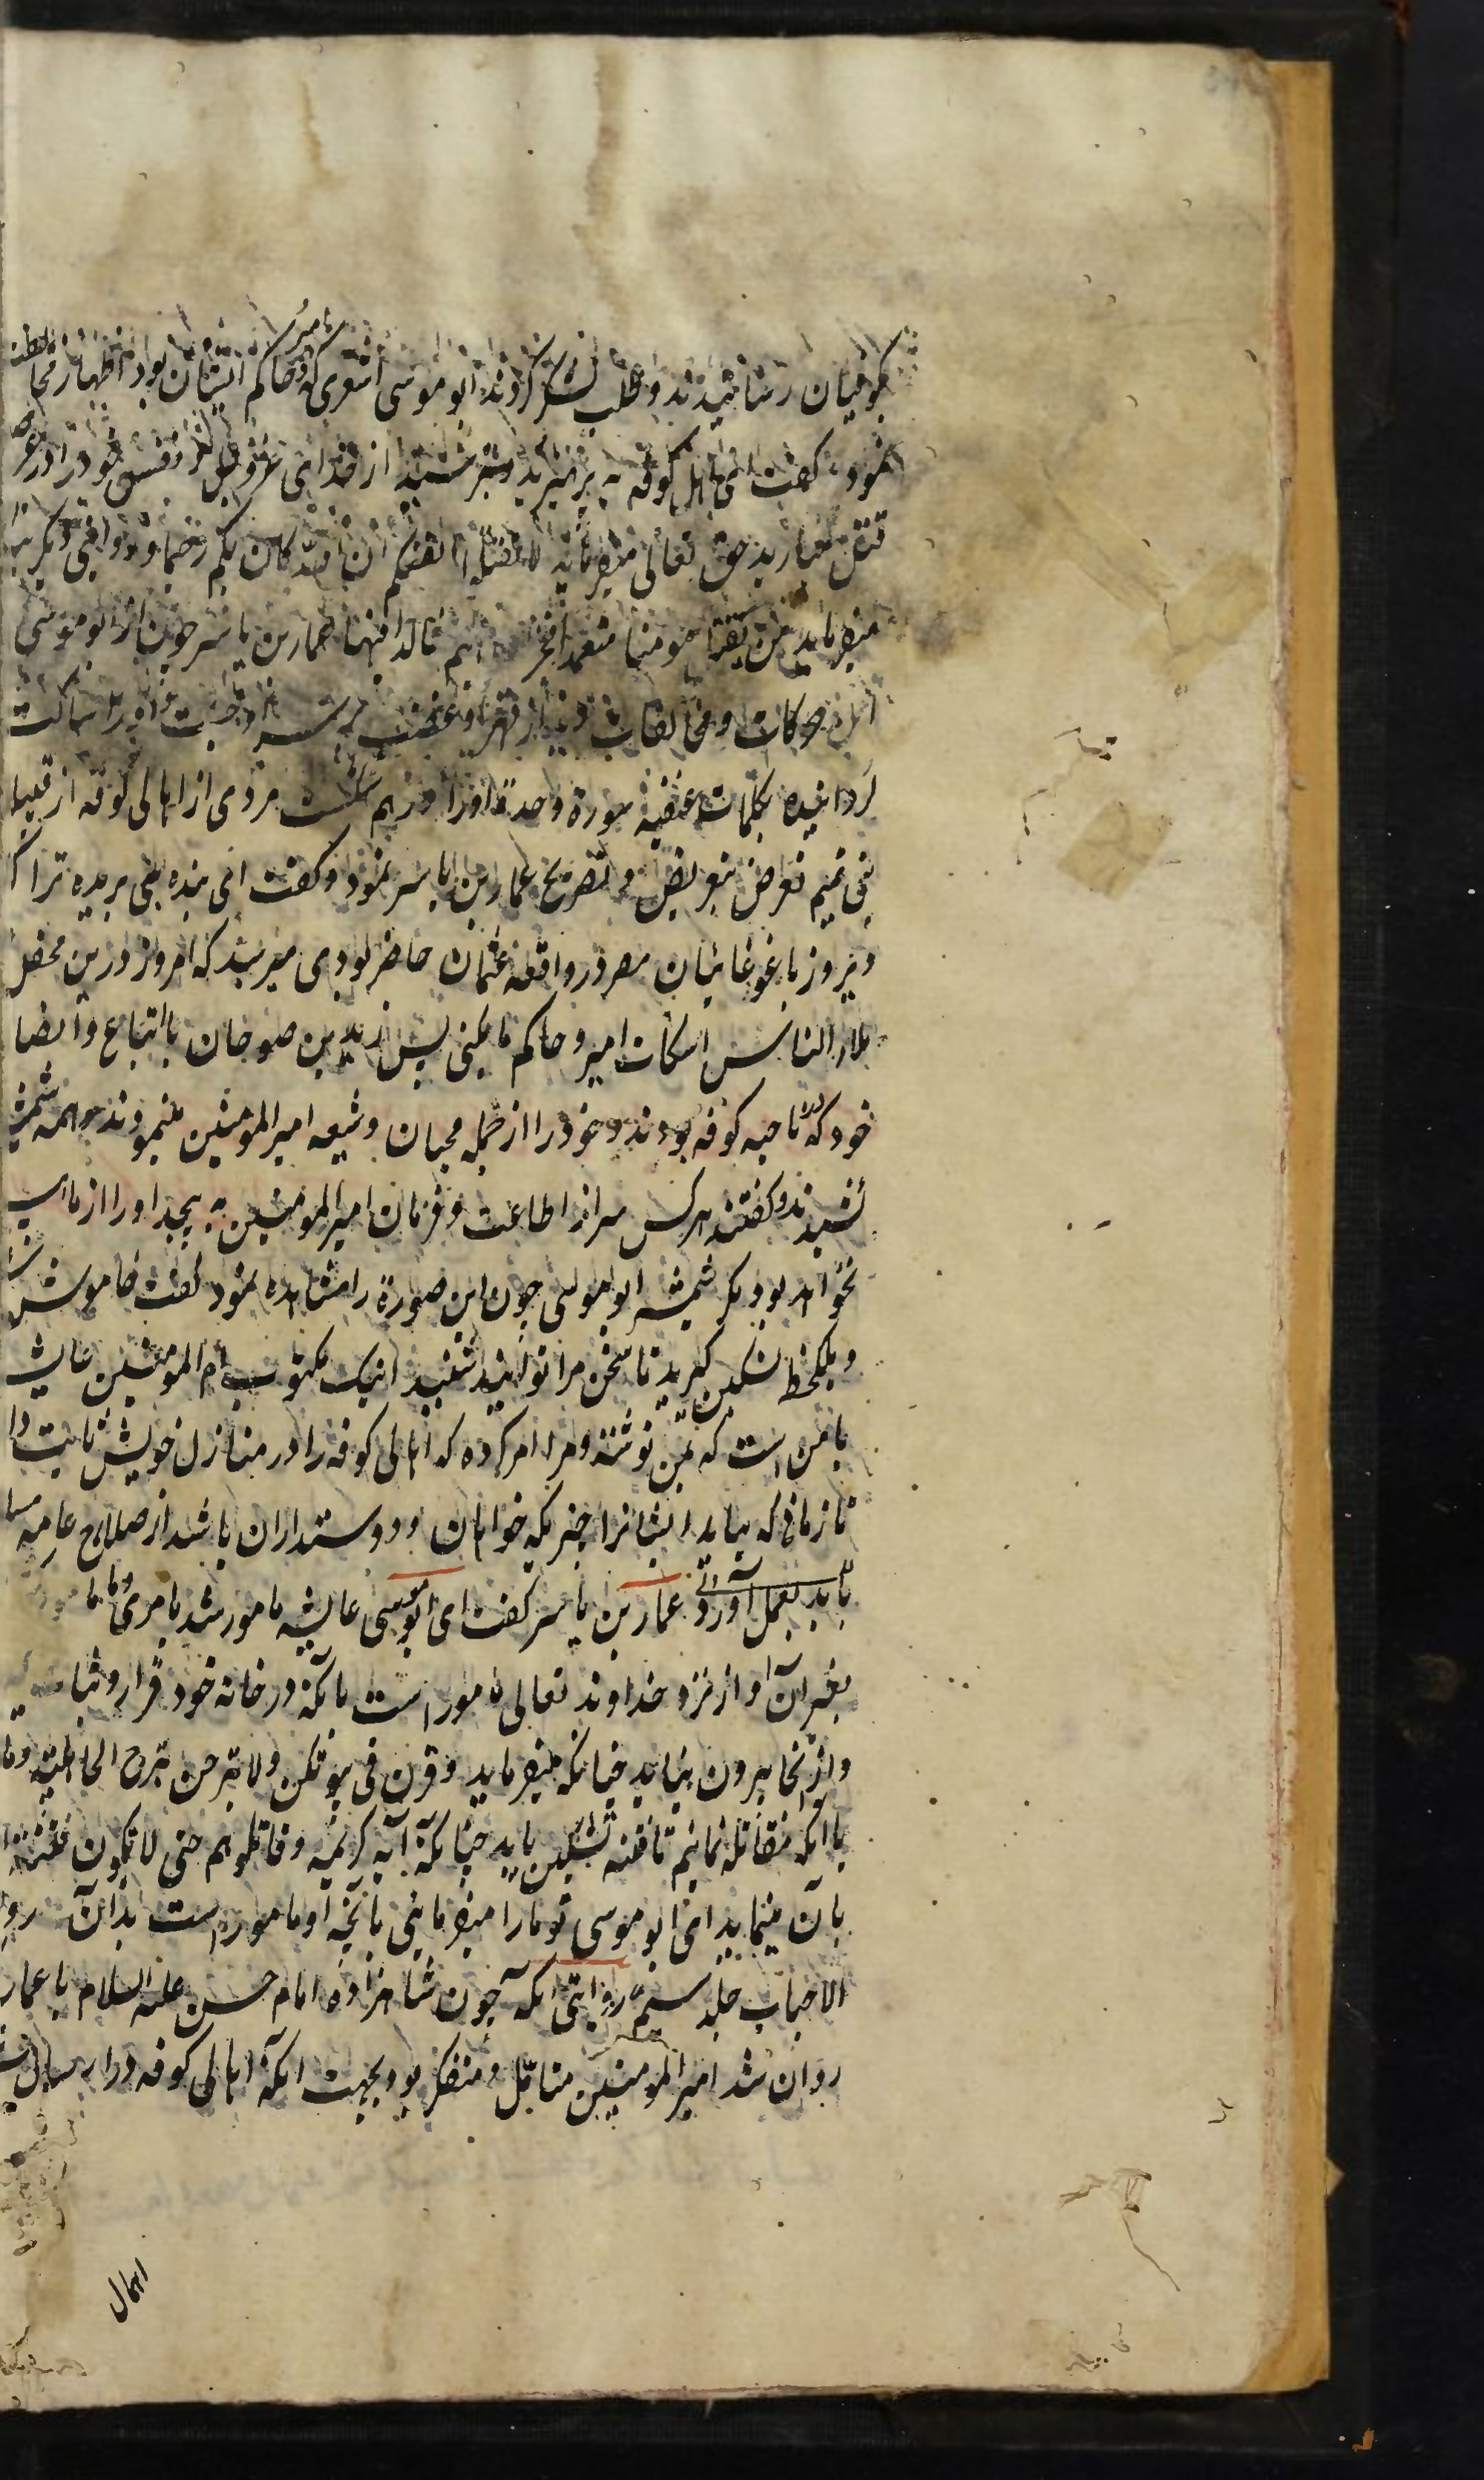 بکوفیان رسانیدند و طلب لشکر کردند ابو موسی اشعری که امیر و حاکم ایشان بود اظهار مخالفت
نمود گفت ای اهل کوفه به پرهیزید و بترسید از خدای عز و جل نفس خود را در معرض
قتل میارید حق تعالی میفرماید لا تقتلوا انفسکم ان الله کان بکم رحیما و در وافی دیگر
میفرماید من یقتل مومنا متعمدا جهنم خالدا فیها عمار بن یاسر چون از ابو موسی
این حرکات و مخالفات دید از قهر و غضب جست او را ساکت
گردانیده بکلمات عنفیه سورة وحدة او را در هم شکست مردی از اهالی کوفه از قبیله
بنی تمیم تعرض بتعریض و تصریح عمار بن یاسر نمود و گفت ای بنده بینی بریده ترا که
دیروز با غوغائیان مصر در واقعه عثمان حاضر بودی میرسد که امروز درین محفل
بملاء الناس اسکات امیر و حاکم ما کنی پس زید بن صوحان با اتباع و انصار
خود که در ناحیه کوفه بودند و خود را از جمله محبان و شیعه امیر المومنین مینمودند همه شمشیر
کشیدند و گفتند هر کس سر از اطاعت و فرمان امیر المومنین به پیچد او را از ما
نخواهد بود مگر شمشیر ابو موسی چون این صورة را مشاهده نمود گفت خاموش
و یکلحظه تسکین گیرید تا سخن مرا توانید شنید اینک مکتوب ام المومنین عایشه
با من است که بمن نوشته و مرا امر کرده که اهالی کوفه را در منازل خویش ثابت دار
تا زمانی که بیاید ایشانرا چیزیکه خواهان و دوستداران باشند از صلاح عامه
باید بعمل آورد عمار بن یاسر گفت ای ابو موسی عایشه مامور شد بامری
بغیر آن او از نزد خداوند تعالی مامور است بآنکه در خانه خود قرار و ثبات
و از آنجا بیرون نیاید چنانکه میفرماید و قرن فی بیوتکن و لا تبرجن تبرج الجاهلیة و ما
باینکه مقاتله نمائیم تا فتنه تسکین یابد چنانکه آیه کریمه و قاتلوهم حتی لا تکون فتنة
بآن مینماید ای ابو موسی تو ما را میفرمائی بآنچه او مامور است بدان
الاحباب جلد سیم روایتی آنکه چون شاهزاده امام حسن علیه السلام با عمار
روان شد امیر المومنین متأمل و متفکر بود بجهت آنکه اهالی کوفه در ارسال
اهمال